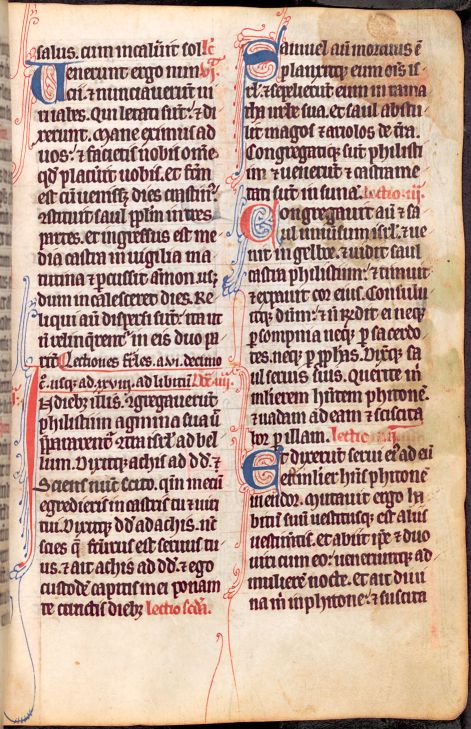 salus. cum incaluerit sol lc̄
Venerunt ergo nun vj̄
cii. ⁊ nunciaverunt ui
ri iabes. Qui letati sunt. ⁊ di
xerunt. Mane eximus ad
vos. ⁊ facietis nobis om̄e
qd̄ placuit vobis. et fc̄m
est cū venisset dies crastin⁹.
⁊stituit saul pplm in tres
partes. et ingressus est me
dia castra in vigilia ma
tutina ⁊ percussit āmon usq;
dum incalesceret dies. Re
liqui aū dispersi sūt. ita ut
nō relinq̄rent̄ in eis duo pa
rit̄. Lectiones fr̄les. a xvi. decimo
c̄. usq; ad xxviii. ad libitū Dc̄a iiii.
In dieb; illis. ⁊gregaverūt
philistiim agmina sua ū
ppararent̄ ⁊tra isr̄l ad bel
lum. Dixitq; achis ad dd̄. ⁊
Sciens nūc scito. qm̄ mecū
egredieris in castris tu ⁊ viri
tui. Dixitq; dd̄ ad achis. nūc
scies q̄ fc̄turus est servus tu
us. ⁊ ait achis ad dd̄. ⁊ ego
custodē capitis mei ponam
te cunctis dieb; lectio scd̄a.
Samuel aū mortuus ē
planxitq; eum om̄is is
rl̄. ⁊ sepelierūt eum in rama
tha urbe sua. Et saul abstu
lit magos ⁊ ariolos de tr̄a.
Congregatiq; sūt philisti
im ⁊ venerūt ⁊ castrame
tati sūt in sunā. lectio iii.
Congregavit aū ⁊ sa
ul univsum isrl̄. ⁊ ve
nit in gelboe. ⁊ vidit saul
castra philistiim. ⁊ timuit
⁊ expavit cor eius. Consulu
itq; dūm. ⁊ nō rn̄dit ei neq;
p sompnia neq; p sacerdo
tes. neq; p pphas. Dixitq; sa
ul servis suis. Querite m̄
mulierem hn̄tem phitonē.
⁊ vadam ad eam ⁊ sciscita
bor p illam. lectio iiii.
Et dixerūt servi ei⁹ ad eū
Est mulier hn̄s phitonē
in endor. Mutavit ergo ha
bitū suū vestitusq; est aliis
vestimtis. et abiit ip̄e ⁊ duo
viri cum eo. veneruntq; ad
mulierē nocte. et ait divi
na m̄ in phitone. ⁊ suscita